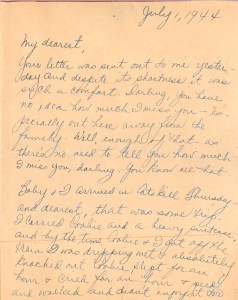 July 1, 1944
My dearest,
Your letter was sent out to me yester-
day and despite its shortness it was
such a comfort. Darling, you have
no idea how much I miss you - Es-
pecially out here, away from the
family. Well, enough of that as
there's no need to tell you how much
I miss you, darling. You know all that.
Baby & I arrived in Catskill Thursday
and dearest, that was some trip.
I carried Cookie and a heavy suitcase,
and by the time Cookie & I got off the
train I was dripping wet & absolutely
knocked out. Cookie slept for an
hour & cried for an hour & per
and walked and